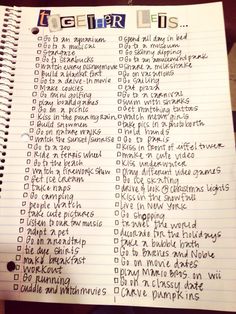 TOGETHER LETS...
Go to an aquarium
Go to a musical
Stargaze
Go to Starbucks
Watch every Disney movie
Build a blanket fort
Go to a drive-in movie
Make cookies
Go on a
play board games
Go on a picnic
Kiss in the pouring rain
Build snowmen
Go on nature walks
Watch the sunset/sunrise
Go to a zoo
Ride a ferris wheel
Go to the beach
Watch a firework show
Get ice cream
take naps
Go camping
people watch
take cute pictures
listen to our fav music
adopt a pet
Go on a roadtrip
tie dye shirts
make breakfast
workout
Go running
cuddle and watch movies
Spend all day in bed
Go to a museum
Go skinny dipping
Go to an amusement park
Share a milkshake
Go on vacations
Go sailing
Eat pizza
Go to a carnival
Swim with sharks
Get matching tattoos
Watch meteors
take pics in a photobooth
hold hands
Go to paris
Kiss in front of eiffel tower
make a cute video
Kiss underwater
Play different video games
Go ice skating
drive & look @ christmas lights
Kiss in the snowfall
live in New York
Go shopping
travel the world
decorate for the holidays
take a bubble bath
Go to Barnes and Noble
Go on movie dates
Play Mario Bros. on wii
Go on a classy date
Carve pumpkins